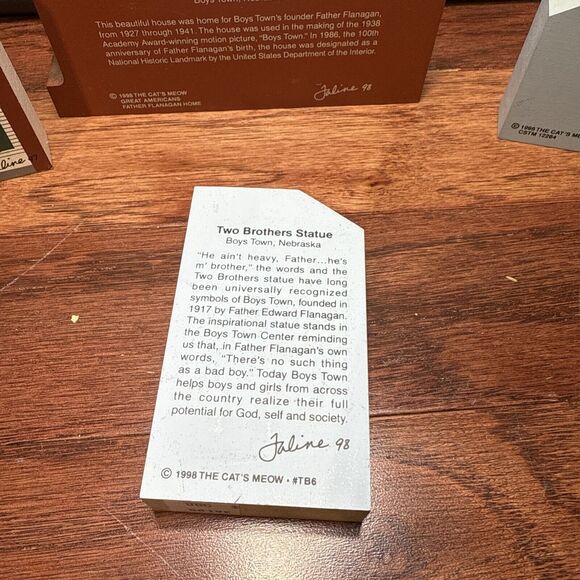 This beautiful house was home for Boys Town's founder Father Flanagan,
from 1927 through 1941. The house was used in the making of the 1938
Academy Award-winning motion picture, "Boys Town." In 1986, the 100th
anniversary of Father Flanagan's birth, the house was designated as a
National Historic Landmark by the United States Department of the Interior.
© 1998 THE CAT'S MEOW
GREAT AMERICANS
FATHER FLANAGAN HOME
Faline 98
© 1998 THE CAT'S
CSTM 12264
Two Brothers Statue
Boys Town, Nebraska
"He ain't heavy, Father...he's
m' brother," the words and the
Two Brothers statue have long
been universally recognized
symbols of Boys Town, founded in
1917 by Father Edward Flanagan.
The inspirational statue stands in
the Boys Town Center reminding
us that, in Father Flanagan's own
words, "There's no such thing
as a bad boy." Today Boys Town
helps boys and girls from across
the country realize their full
potential for God, self and society.
Faline 98
© 1998 THE CAT'S MEOW • #TB6